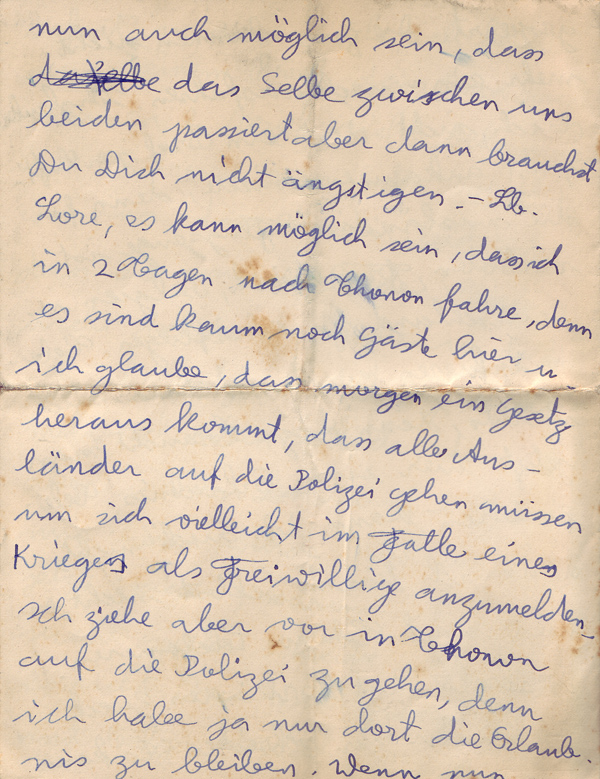 nun auch möglich sein, dass
daselbe das Selbe zwischen uns
beiden passiert aber dann brauchst
Du Dich nicht ängstigen. – Lb.
Lore, es kann möglich sein, dass ich
in 2 Tagen nach Thonon fahre, denn
es sind kaum noch Gäste hier u.
ich glaube, dass morgen ein Gesetz
heraus kommt, dass alle Aus-
länder auf die Polizei gehen müssen
um sich vielleicht im Falle eines
Krieges als Freiwillige anzumelden.
Ich ziehe aber vor in Thonon
auf die Polizei zu gehen, denn
ich habe ja nur dort die Erlaub-
nis zu bleiben. Wenn nun